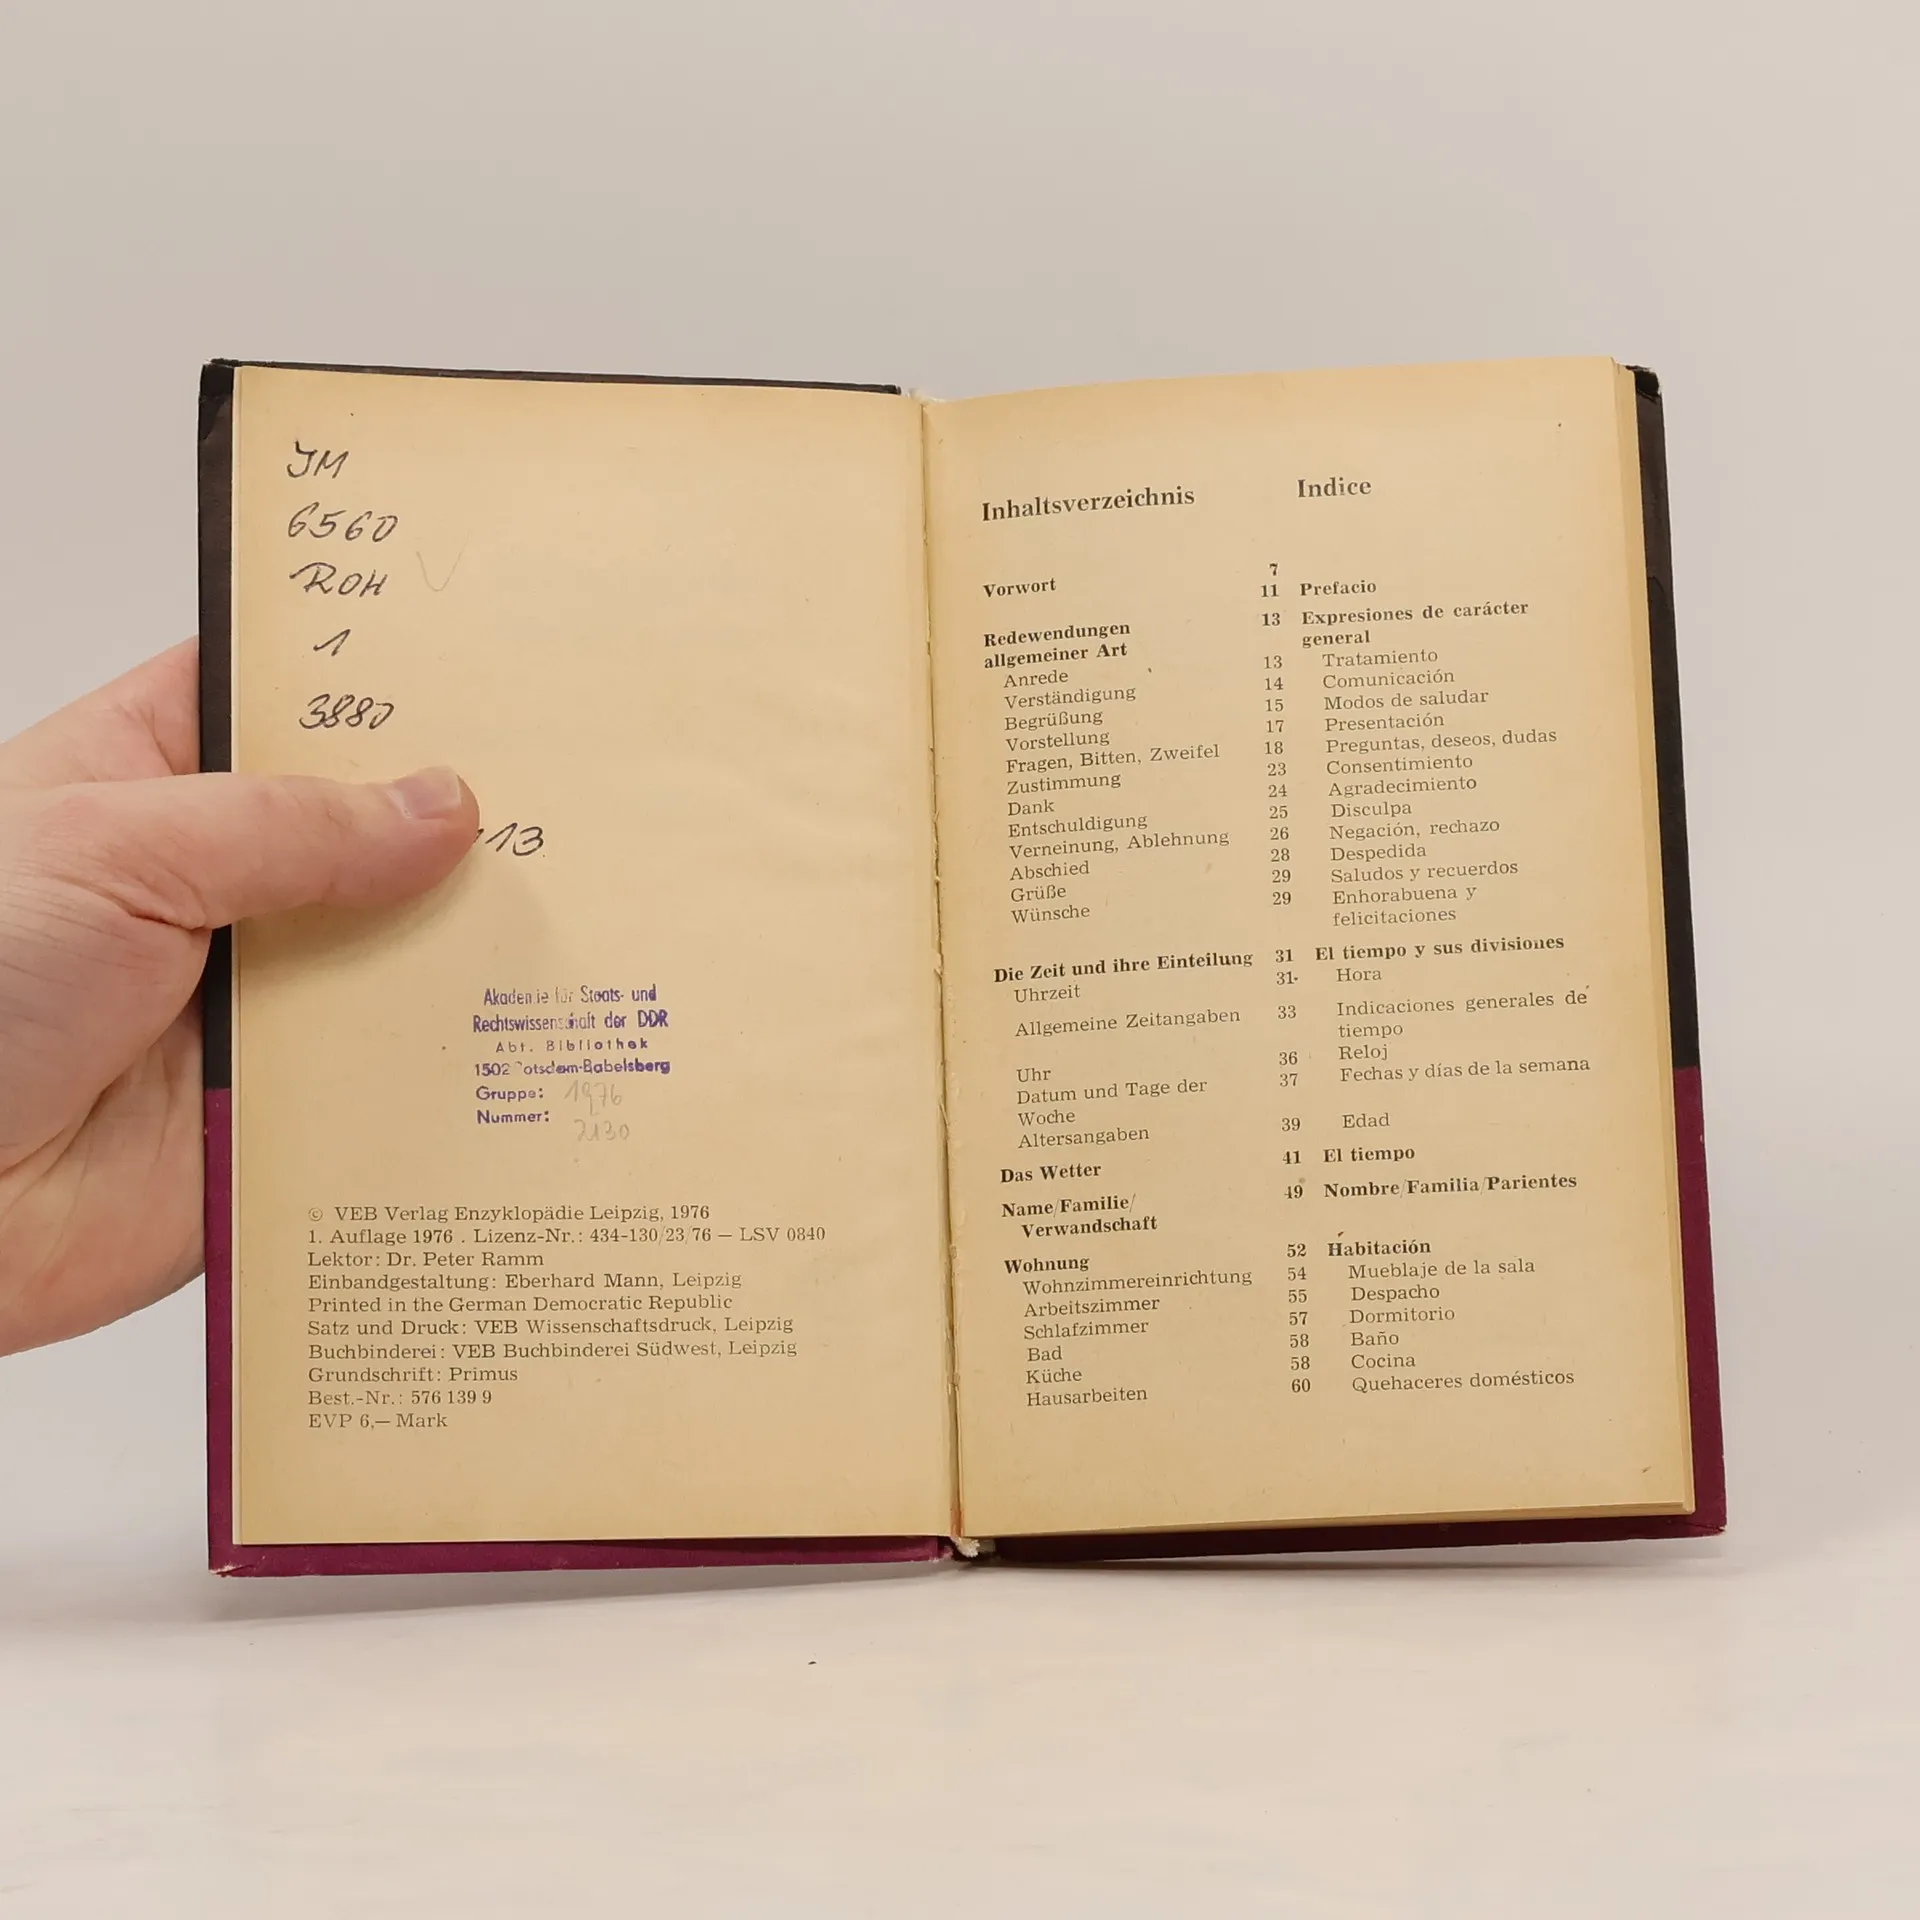 JM
6560
ROH
1
3880
113
Akademie für Staats- und
Rechtswissenschaft der DDR
Abt. Bibliothek
1502 Potsdam-Babelsberg
Gruppe: 1976
Nummer: 2130
© VEB Verlag Enzyklopädie Leipzig, 1976
1. Auflage 1976 . Lizenz-Nr.: 434-130/23/76 — LSV 0840
Lektor: Dr. Peter Ramm
Einbandgestaltung: Eberhard Mann, Leipzig
Printed in the German Democratic Republic
Satz und Druck: VEB Wissenschaftsdruck, Leipzig
Buchbinderei: VEB Buchbinderei Südwest, Leipzig
Grundschrift: Primus
Best.-Nr.: 576 139 9
EVP 6,— Mark
Inhaltsverzeichnis Indice
7
Vorwort 11 Prefacio
Redewendungen 13 Expresiones de carácter
allgemeiner Art general
Anrede 13 Tratamiento
Verständigung 14 Comunicación
Begrüßung 15 Modos de saludar
Vorstellung 17 Presentación
Fragen, Bitten, Zweifel 18 Preguntas, deseos, dudas
Zustimmung 23 Consentimiento
Dank 24 Agradecimiento
Entschuldigung 25 Disculpa
Verneinung, Ablehnung 26 Negación, rechazo
Abschied 28 Despedida
Grüße 29 Saludos y recuerdos
Wünsche 29 Enhorabuena y
felicitaciones
Die Zeit und ihre Einteilung 31 El tiempo y sus divisiones
Uhrzeit 31 Hora
Allgemeine Zeitangaben 33 Indicaciones generales de
tiempo
Uhr 36 Reloj
Datum und Tage der 37 Fechas y días de la semana
Woche
Altersangaben 39 Edad
Das Wetter 41 El tiempo
Name/Familie/ 49 Nombre/Familia/Parientes
Verwandschaft
Wohnung 52 Habitación
Wohnzimmereinrichtung 54 Mueblaje de la sala
Arbeitszimmer 55 Despacho
Schlafzimmer 57 Dormitorio
Bad 58 Baño
Küche 58 Cocina
Hausarbeiten 60 Quehaceres domésticos